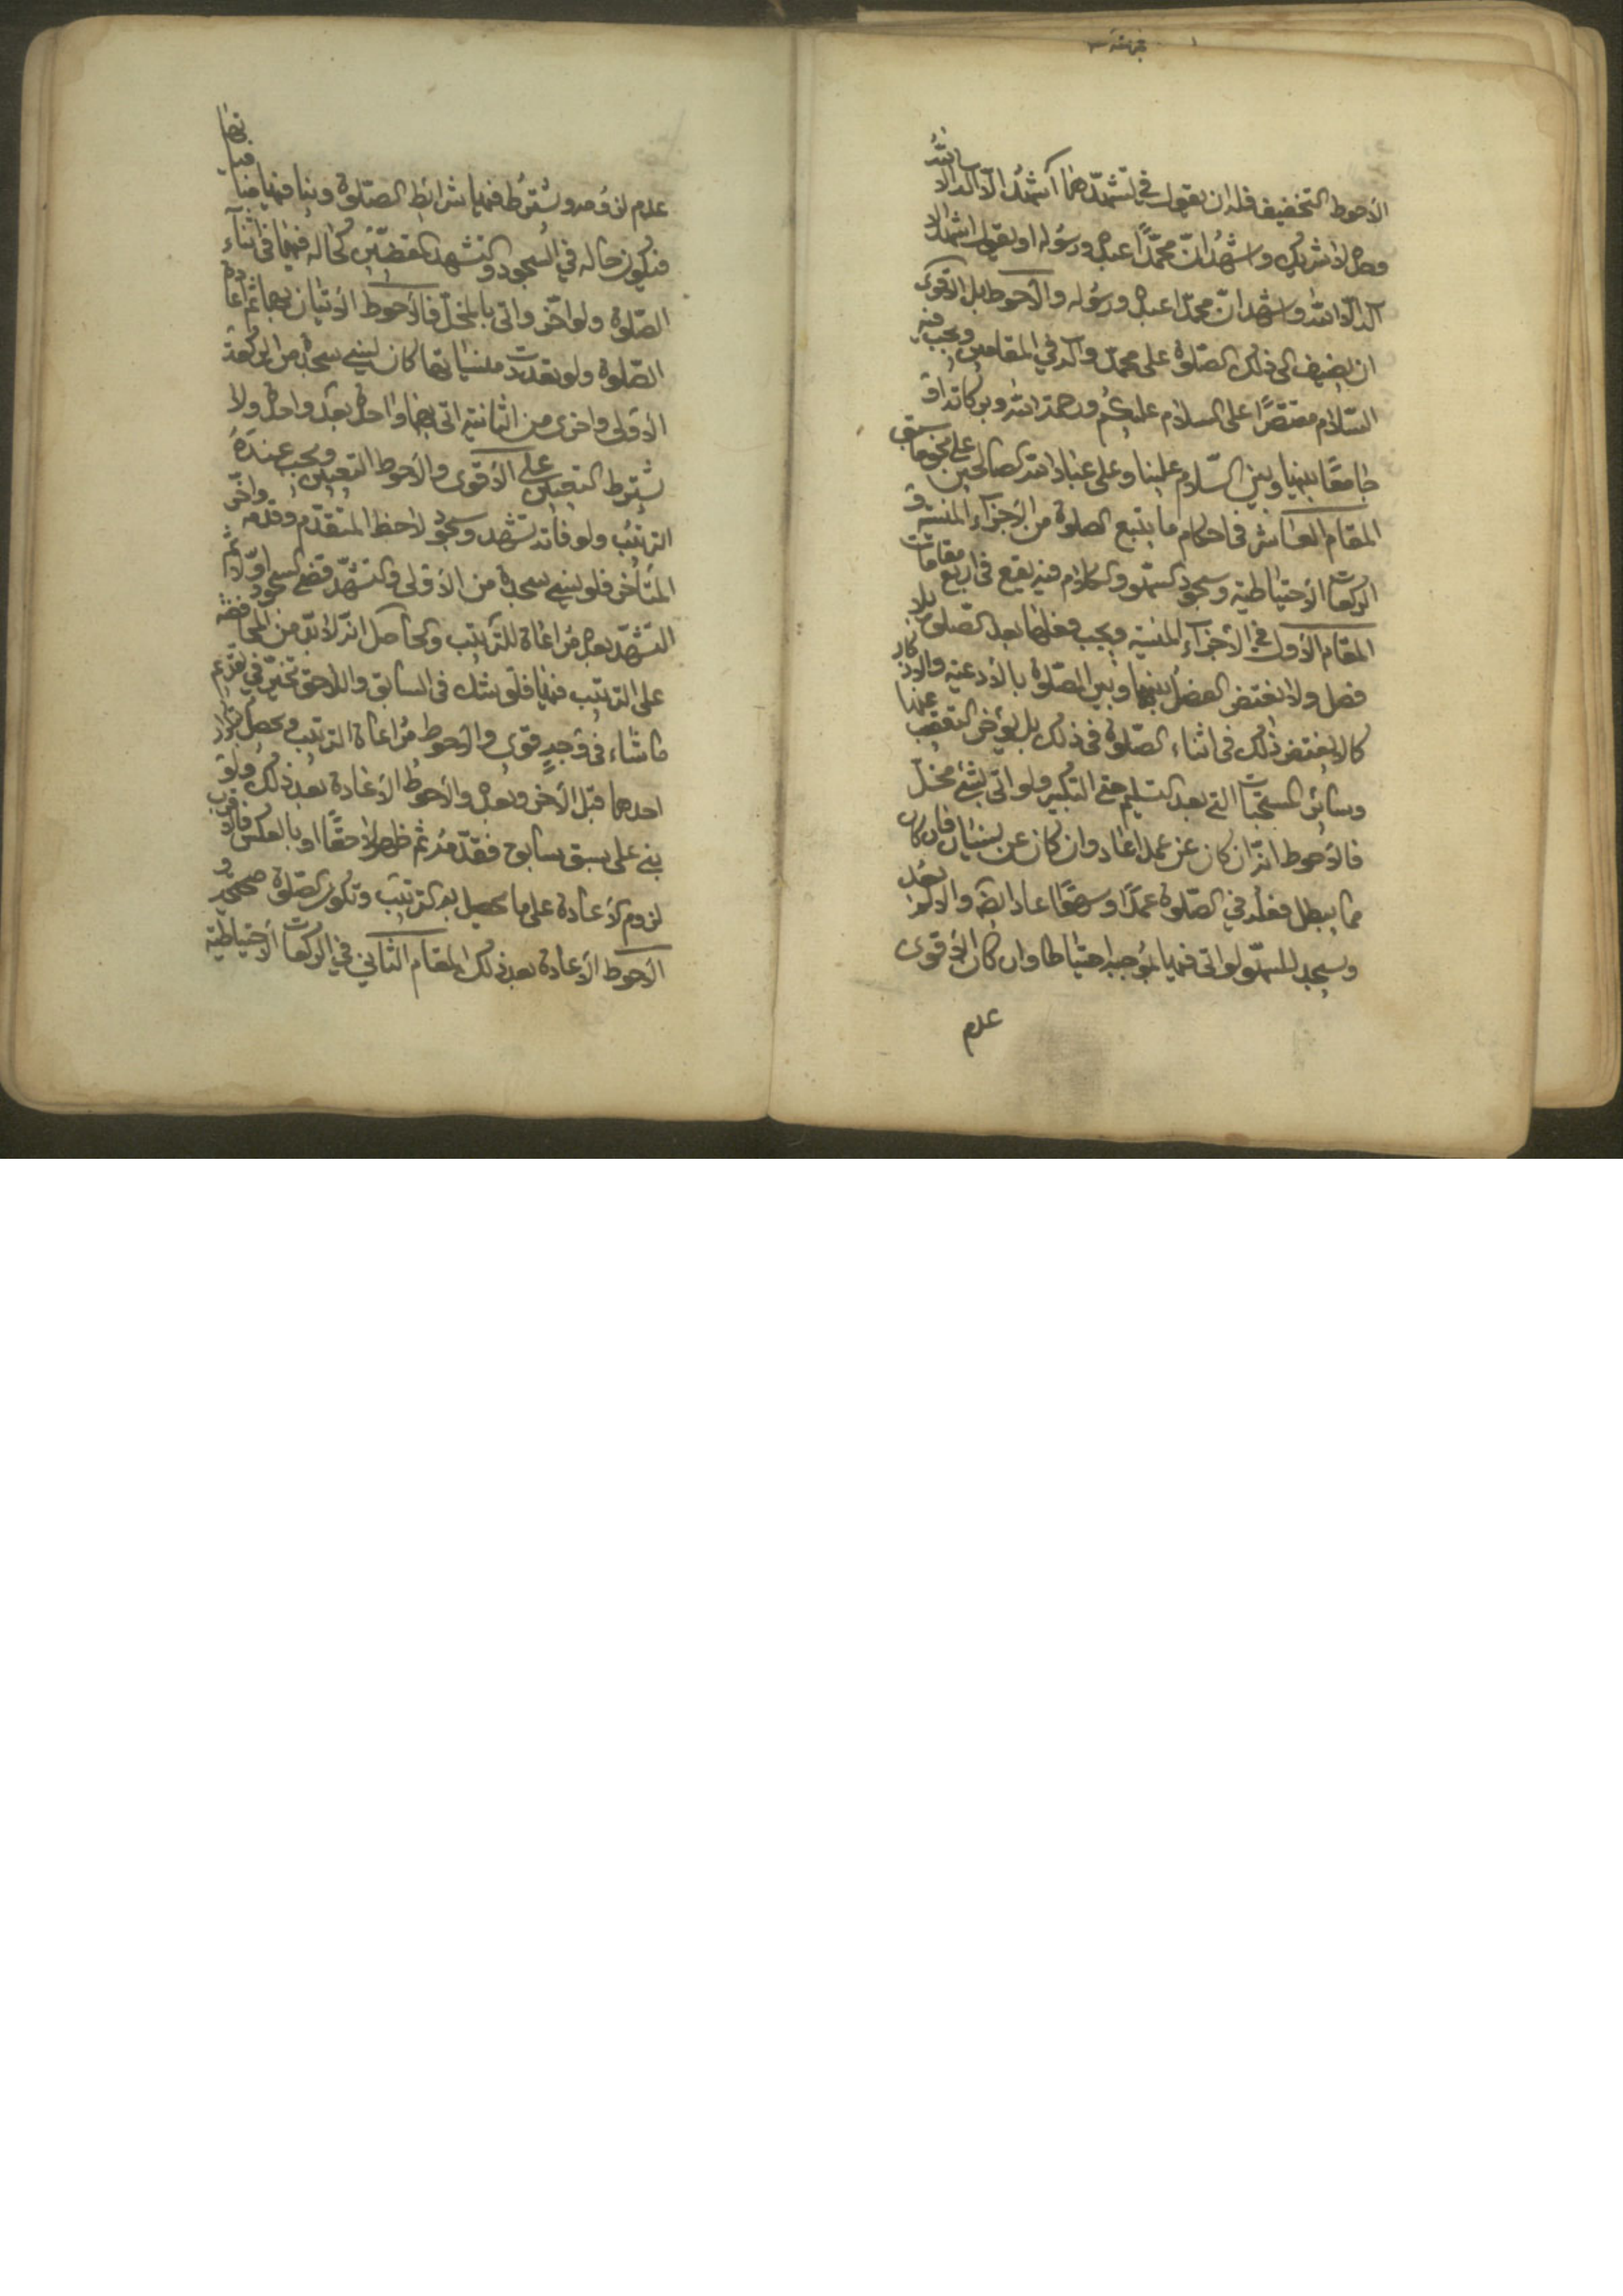 الأحوط التخفيف فله ان يقول في تشهدهما اشهد ان لا اله الا الله
وحده لا شريك وأشهد انّ محمّدًا عبده ورسوله او يقول اشهد ان لا
اله الّا الله واشهد انّ محمّدا عبده ورسوله والأحوط بل الأقوى
ان يضيف الى ذلك الصّلوة على محمّد وآله في المقامين ويجب فيه
السّلام مقتصرًا على السلام عليكم ورحمة الله وبركاته او
جامعًا بينها وبين السّلام علينا وعلى عباد الله الصالحين على نحو ما سبق
المقام العاشر في احكام ما يتبع الصلوة من الأجزاء المنسيّة و
الركعات الأحتياطية وسجود السّهو والكلام فيه يقع في اربع مقامات
المقام الأول في الأجزاء المنسيه ويجب فعلها بعد الصّلوة بلا
فصل ولا يغتفر الفصل بينها وبين الصّلوة بالأدعية والأذكار
كما لا يغتفر ذلك في اثناء الصّلوة في ذلك بل يؤخر التعقيب عنها
وسائر المستحبات التي بعد التسليم حتى التكبير ولو اتى بشئ مخلّ
فالأحوط انّه ان كان عن عمد اعاد وان كان عن نسيان فان كان
مما يبطل فعله في الصّلوة عمدًا وسهوًا اعاد ايضًا والا فلا يعد
ويسجد للسّهو لو اتى فيها بموجبه احتياطا وان كان الأقوى
عدم
عدم لزومه ويشترط فيها شرائط الصّلوة وينافيها منافياتها
فيكون حاله في السجود والتشهد المقضيّين كحاله فيهما في اثناء
الصّلوة ولو اخّر واتى بالمخلّ فالأحوط الأتيان بهما ثم اعادة
الصّلوة ولو تعددت منسياتها كان ينسى سجدة من الركعة
الأولى واخرى من الثانية اتى بهما واحدة بعد واحدة ولا
يشترط التعيين على الأقوى والأحوط التعيين ويجب عنده
الترتيب ولو فاته تشهد وسجود لاحظ المتقدّم وقدّمه واخّر
المتأخر فلو نسى سجدة من الأولى والتشهّد قضى السجود اوّلا ثم
التشهّد بعده مراعاة للترتيب والحاصل انّه لا بدّ من المحافظة
على الترتيب فيها فلو شك في السابق واللاحق تخيّر في تقديم
ما شاء في وجهٍ قوى والأحوط مراعاة الترتيب ويحصل بتكرار
احدهما قبل الأخر وبعده والأحوط الأعادة بعد ذلك ولو
بنى على سبق سابق فقدّمه ثم ظهر لاحقًا او بالعكس فالأقرب
لزوم الأعادة على ما يحصل به الترتيب وتكون الصّلوة صحيحة و
الأحوط الأعادة بعد ذلك المقام الثاني في الركعات الأحتياطية